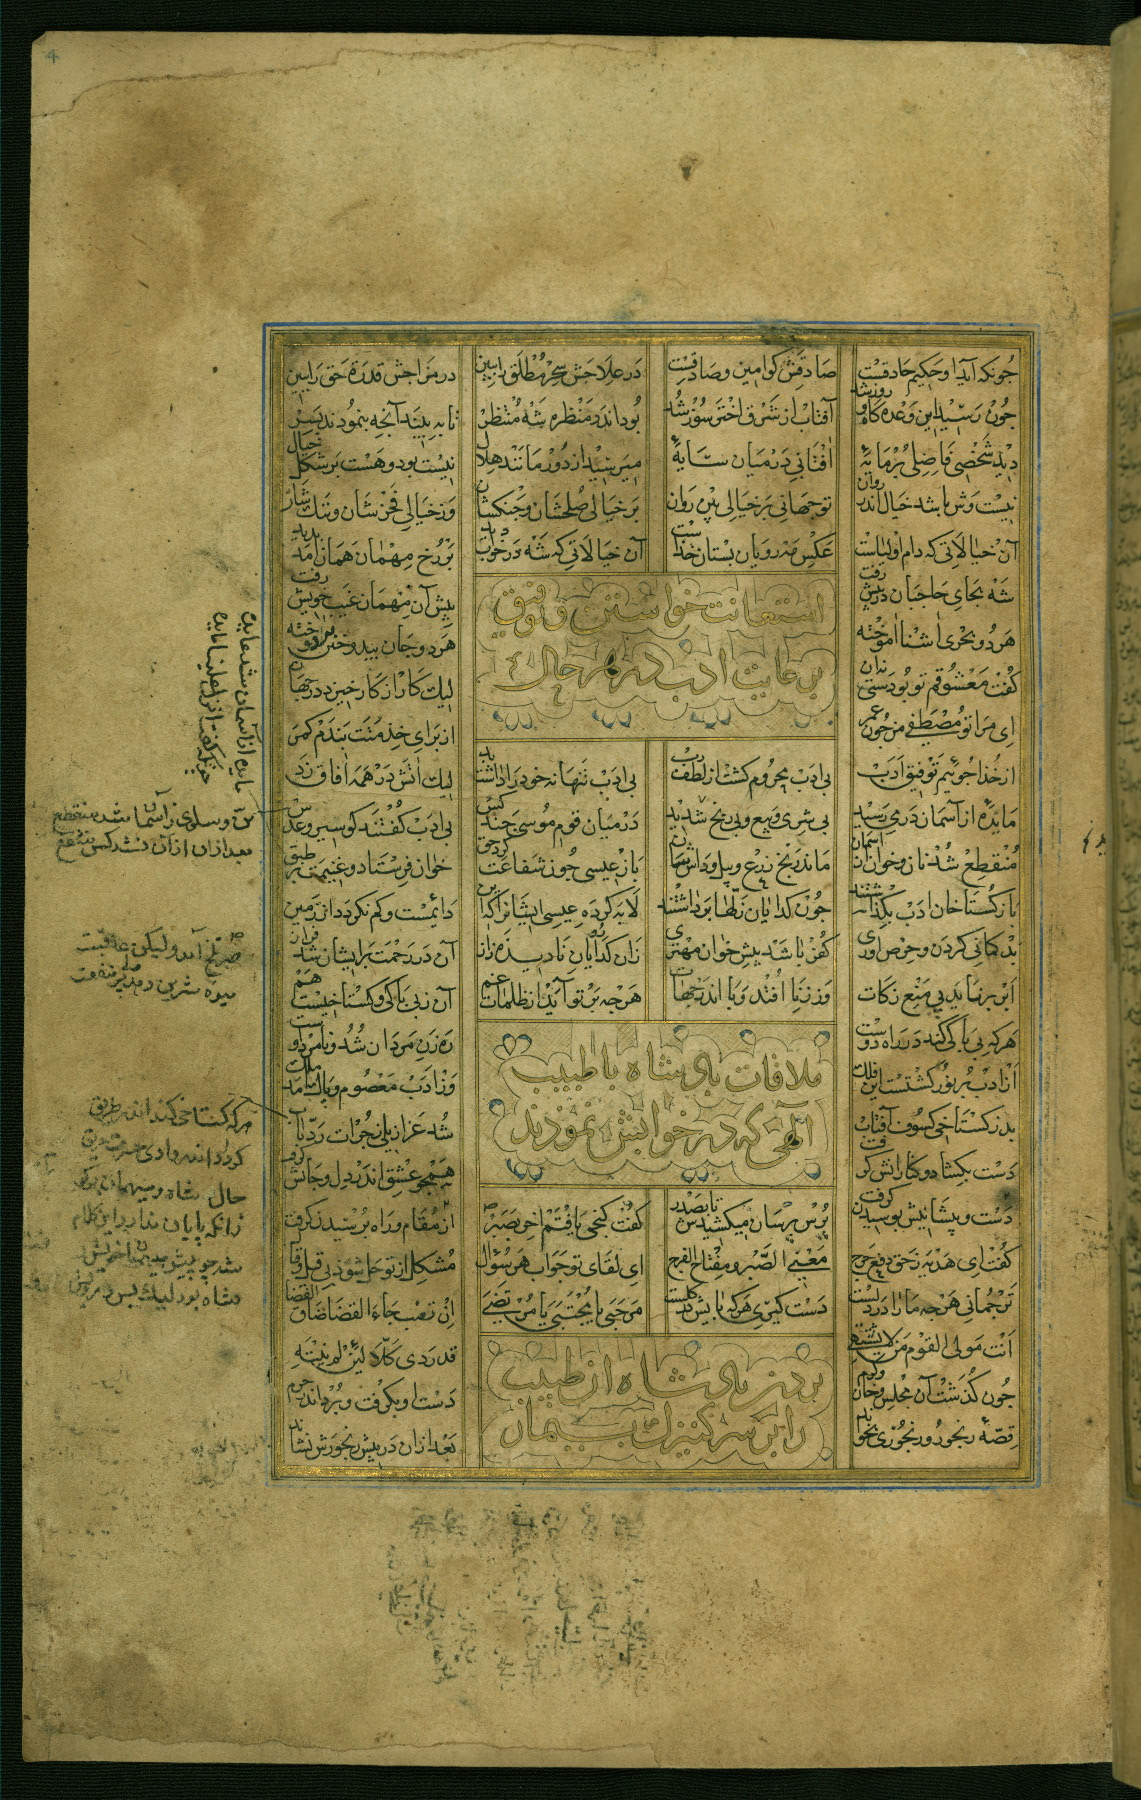 چونکه آید او حکیم حاذقست صادقش کو امین و صادقست
در علاجش سحر مطلق را ببین در مزاجش قدرة حق را ببین
چون رسید این وعده گاه و روز شد آفتاب از شرق اختر سوز شد
بود اندر منظره شه منتظر تا ببیند آنچه بنمودند سر
دید شخصی فاضلی پرمایهٔ آفتابی در میان سایهٔ
میرسید از دور مانند هلال نیست بود و هست بر شکل خیال
نیست وش باشد خیال اندر روان تو جهانی بر خیالی بین روان
بر خیالی صلحشان و جنکشان وز خیالی فخرشان و ننکشان
آن خیالاتی که دام اولیاست عکس مه رویان بستان خداست
آن خیالاتی که شه در خواب دید بر رخ مهمان همان آمد پدید
شه بجای حاجبان در پیش رفت پیش آن مهمان غیب خویش رفت
هر دو بحری آشنا آموخته هر دو جان بی دوختن بر دوخته
کفت معشوقم تو بودستی نه آن لیک کار از کار خیزد در جهان
ای مرا تو مصطفی من چون عمر از برای خدمتت بندم کمر
استعانت خواستن و توفیق
بر عایت ادب در هر حال
از خدا جوئیم توفیق ادب بی ادب محروم کشت از لطف رب
بی ادب تنها نه خود را داشت بد لیک آتش در همه آفاق زد
مائده از آسمان در می رسید بی شری و بیع و بی رنج شدید
در میان قوم موسی چند کس بی ادب کفتند کو سیر و عدس
منقطع شد نان و خوان از آسمان ماند رنج زرع و بیل و داسشان
باز عیسی چون شفاعت کرد حق خوان فرستاد و غنیمت بر طبق
باز کستاخان ادب بکذاشتند چون کدایان زلها برداشتند
لابه کرده عیسی ایشانرا که این دائمست و کم نکردد از زمین
بد کمانی کردن و حرص آوری کفر باشد پیش خوان مهتری
زان کدایان نادیده ز آز آن در رحمت بر ایشان شد فراز
ابر برناید پی منع زکات وز زنا افتد وبا اندر جهات
هر چه بر تو آید از ظلمات غم آن ز بی باکی و کستاخیست هم
هر که بی باکی کند در راه دوست ره زن مردان شد و نامرد اوست
از ادب پر نور کشتست این فلک وز ادب معصوم و پاک آمد ملک
بد ز کستاخی کسوف آفتاب شد عزازیلی ز جرات رد باب
ملاقات پادشاه با طبیب
الهی که در خوابش نمودند
دست بکشاد و کنارانش کرفت همچو عشق اندر دل و جانش کرفت
دست و پیشانیش بوسیدن کرفت از مقام و راه پرسیدن کرفت
پرس پرسان میکشیدش تا بصدر کفت کنجی یافتم آخر بصبر
کفت ای هدیه حق و دفع حرج معنی الصبر مفتاح الفرج
ای لقای تو جواب هر سؤال مشکل از تو حل شود بی قیل و قال
ترجمانی هر چه ما را در دلست دست کیری هر که پایش در کلست
مرحبا یا مجتبی یا مرتضی ان تغب جاء القضا ضاق الفضا
انت مولی القوم من لا یشتهی قد ردی کلا لئن لم ینته
چون کذشت آن مجلس و خوان کرم دست او بکرفت و برد اندر حرم
قصهٔ رنجور و رنجوری بخواند بعد از آن در پیش رنجورش نشاند
بردن پادشاه آن طبیب
را بر سر کنیزک بیمار
مائده از آسمان شد عایده
چونکه گفت انزل علینا مائده
من و سلوی ز آسمان شد منقطع
بعد از آن زان خوان نشد کس منتفع
صبر تلخ آمد و لیکن عاقبت
میوه شیرین دهد پر منفعت
هر که گستاخی کند اندر طریق
گردد اندر وادی حیرت غریق
حال شاه و میهمان بر گو تمام
زانکه پایان ندارد این کلام
شه چو پیش میهمان خویش رفت
شاه بود لیک بس درویش رفت